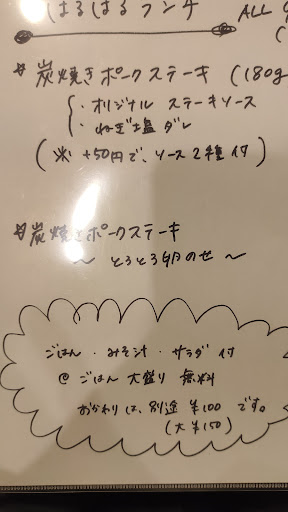 はるはるランチ ALL
☆炭焼きポークステーキ (180g
・オリジナル ステーキソース
・ねぎ塩ダレ
(※ +50円で、ソース2種付)
☆炭焼きポークステーキ
〜 とろとろ卵のせ 〜
ごはん・みそ汁・サラダ付
@ ごはん 大盛り 無料
おかわりは、別途 ¥100 です。
(大¥150)